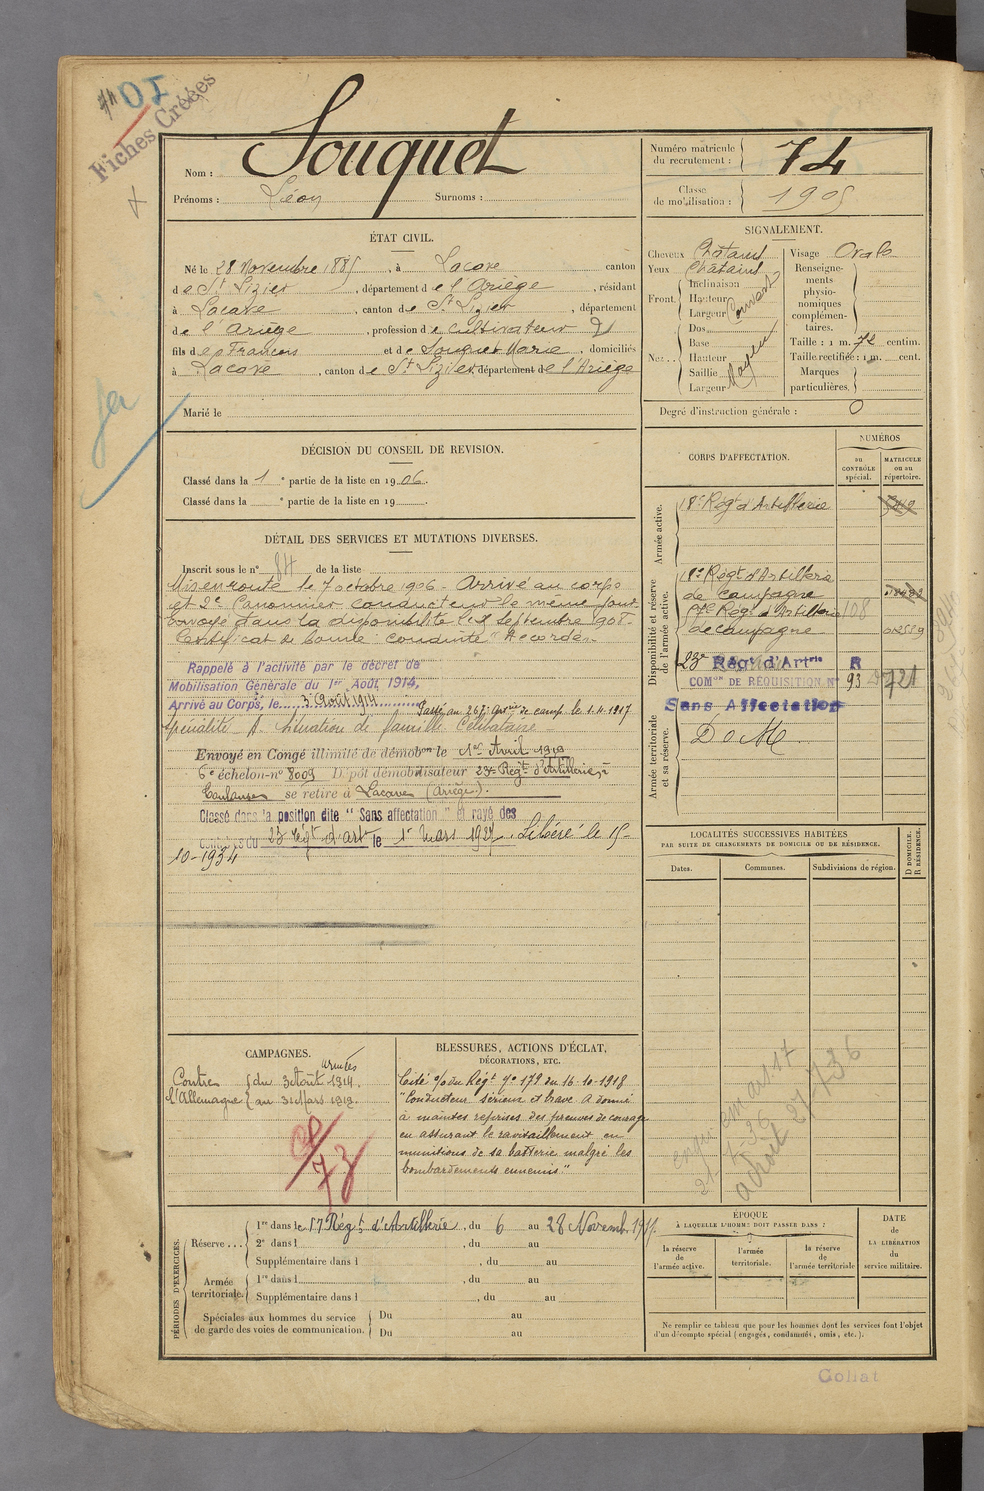 74 OI
Fiches Créées
Nom : Souquet
Prénoms : Léon Surnoms :
Numéro matricule du recrutement : 74
Classe de mobilisation : 1905
ÉTAT CIVIL.
Né le 28 Novembre 1885, à Lacave canton
de St Lizier, département de l'Ariège, résidant
à Lacave, canton de St Lizier, département
de l'Ariège, profession de cultivateur
fils de François et de Souquet Marie, domiciliés
à Lacave, canton de St Lizier, département de l'Ariège
Marié le
SIGNALEMENT.
Cheveux Châtains
Yeux Châtains
Front. Inclinaison
Hauteur
Largeur
Couvert
Nez: Dos
Base
Hauteur
Saillie
Largeur
Moyen
Visage Ovale
Renseignements physionomiques complémentaires.
Taille : 1 m. 72 centim.
Taille rectifiée : 1 m. cent.
Marques particulières.
Degré d'instruction générale : 0
DÉCISION DU CONSEIL DE REVISION.
Classé dans la 1e partie de la liste en 1906.
Classé dans la e partie de la liste en 19
DÉTAIL DES SERVICES ET MUTATIONS DIVERSES.
Inscrit sous le n° 84 de la liste
Mis en route le 7 octobre 1906 - Arrivé au corps
et 2e Canonnier conducteur le même jour
Envoyé dans la disponibilité le septembre 1908.
Certificat de bonne conduite "Accordé"
Rappelé à l'activité par le décret de
Mobilisation Générale du 1er Août 1914,
Arrivé au Corps, le 3 Août 1914
Passé au 267e de camp. le 1.4.1917
Situation de famille Célibataire
Envoyé en Congé illimité de démobon le 1er Avril 1919
6e échelon-n° 8009 Dépôt démobilisateur 23e Régt d'Artillerie à
Toulouse se retire à Lacave (Ariège).
Classé dans la position dite " Sans affectation " et rayé des
contrôles du 23 Régt d'art le 1er Mars 1927. Libéré le 15-
10-1934
CORPS D'AFFECTATION.
NUMÉROS
au CONTRÔLE spécial.
MATRICULE ou au répertoire.
Armée active.
18e Régt d'Artillerie
Disponibilité et réserve de l'armée active.
18e Régt d'Artillerie
de Campagne
57e Régt d'Artillerie 108
de campagne
23e Régt d'Artrie R
COMon DE RÉQUISITION N° 93 721
Sans Affectation
Armée territoriale et sa réserve.
DoM
LOCALITÉS SUCCESSIVES HABITÉES
PAR SUITE DE CHANGEMENTS DE DOMICILE OU DE RÉSIDENCE.
Dates. Communes. Subdivisions de région.
D DOMICILE. R RÉSIDENCE.
CAMPAGNES.
armées
Contre l'Allemagne { du 3 Août 1914.
au 31 Mars 1919.
73
BLESSURES, ACTIONS D'ÉCLAT,
DÉCORATIONS, ETC.
Cité o/ du Régt n° 179 du 16-10-1918
"Conducteur sérieux et brave. A donné
à maintes reprises des preuves de courage
en assurant le ravitaillement en
munitions de sa batterie malgré les
bombardements ennemis"
PÉRIODES D'EXERCICES.
Réserve... 1re dans le 57 Régt d'Artillerie, du 6 au 28 Novemb. 1911.
2e dans l , du au
Supplémentaire dans l , du au
Armée territoriale. 1re dans l , du au
Supplémentaire dans l , du au
Spéciales aux hommes du service de garde des voies de communication. Du au
Du au
ÉPOQUE
À LAQUELLE L'HOMME DOIT PASSER DANS :
la réserve de l'armée active.
l'armée territoriale.
la réserve de l'armée territoriale
DATE de LA LIBÉRATION du service militaire.
Ne remplir ce tableau que pour les hommes dont les services font l'objet
d'un décompte spécial (engagés, condamnés, omis, etc.).
Collat